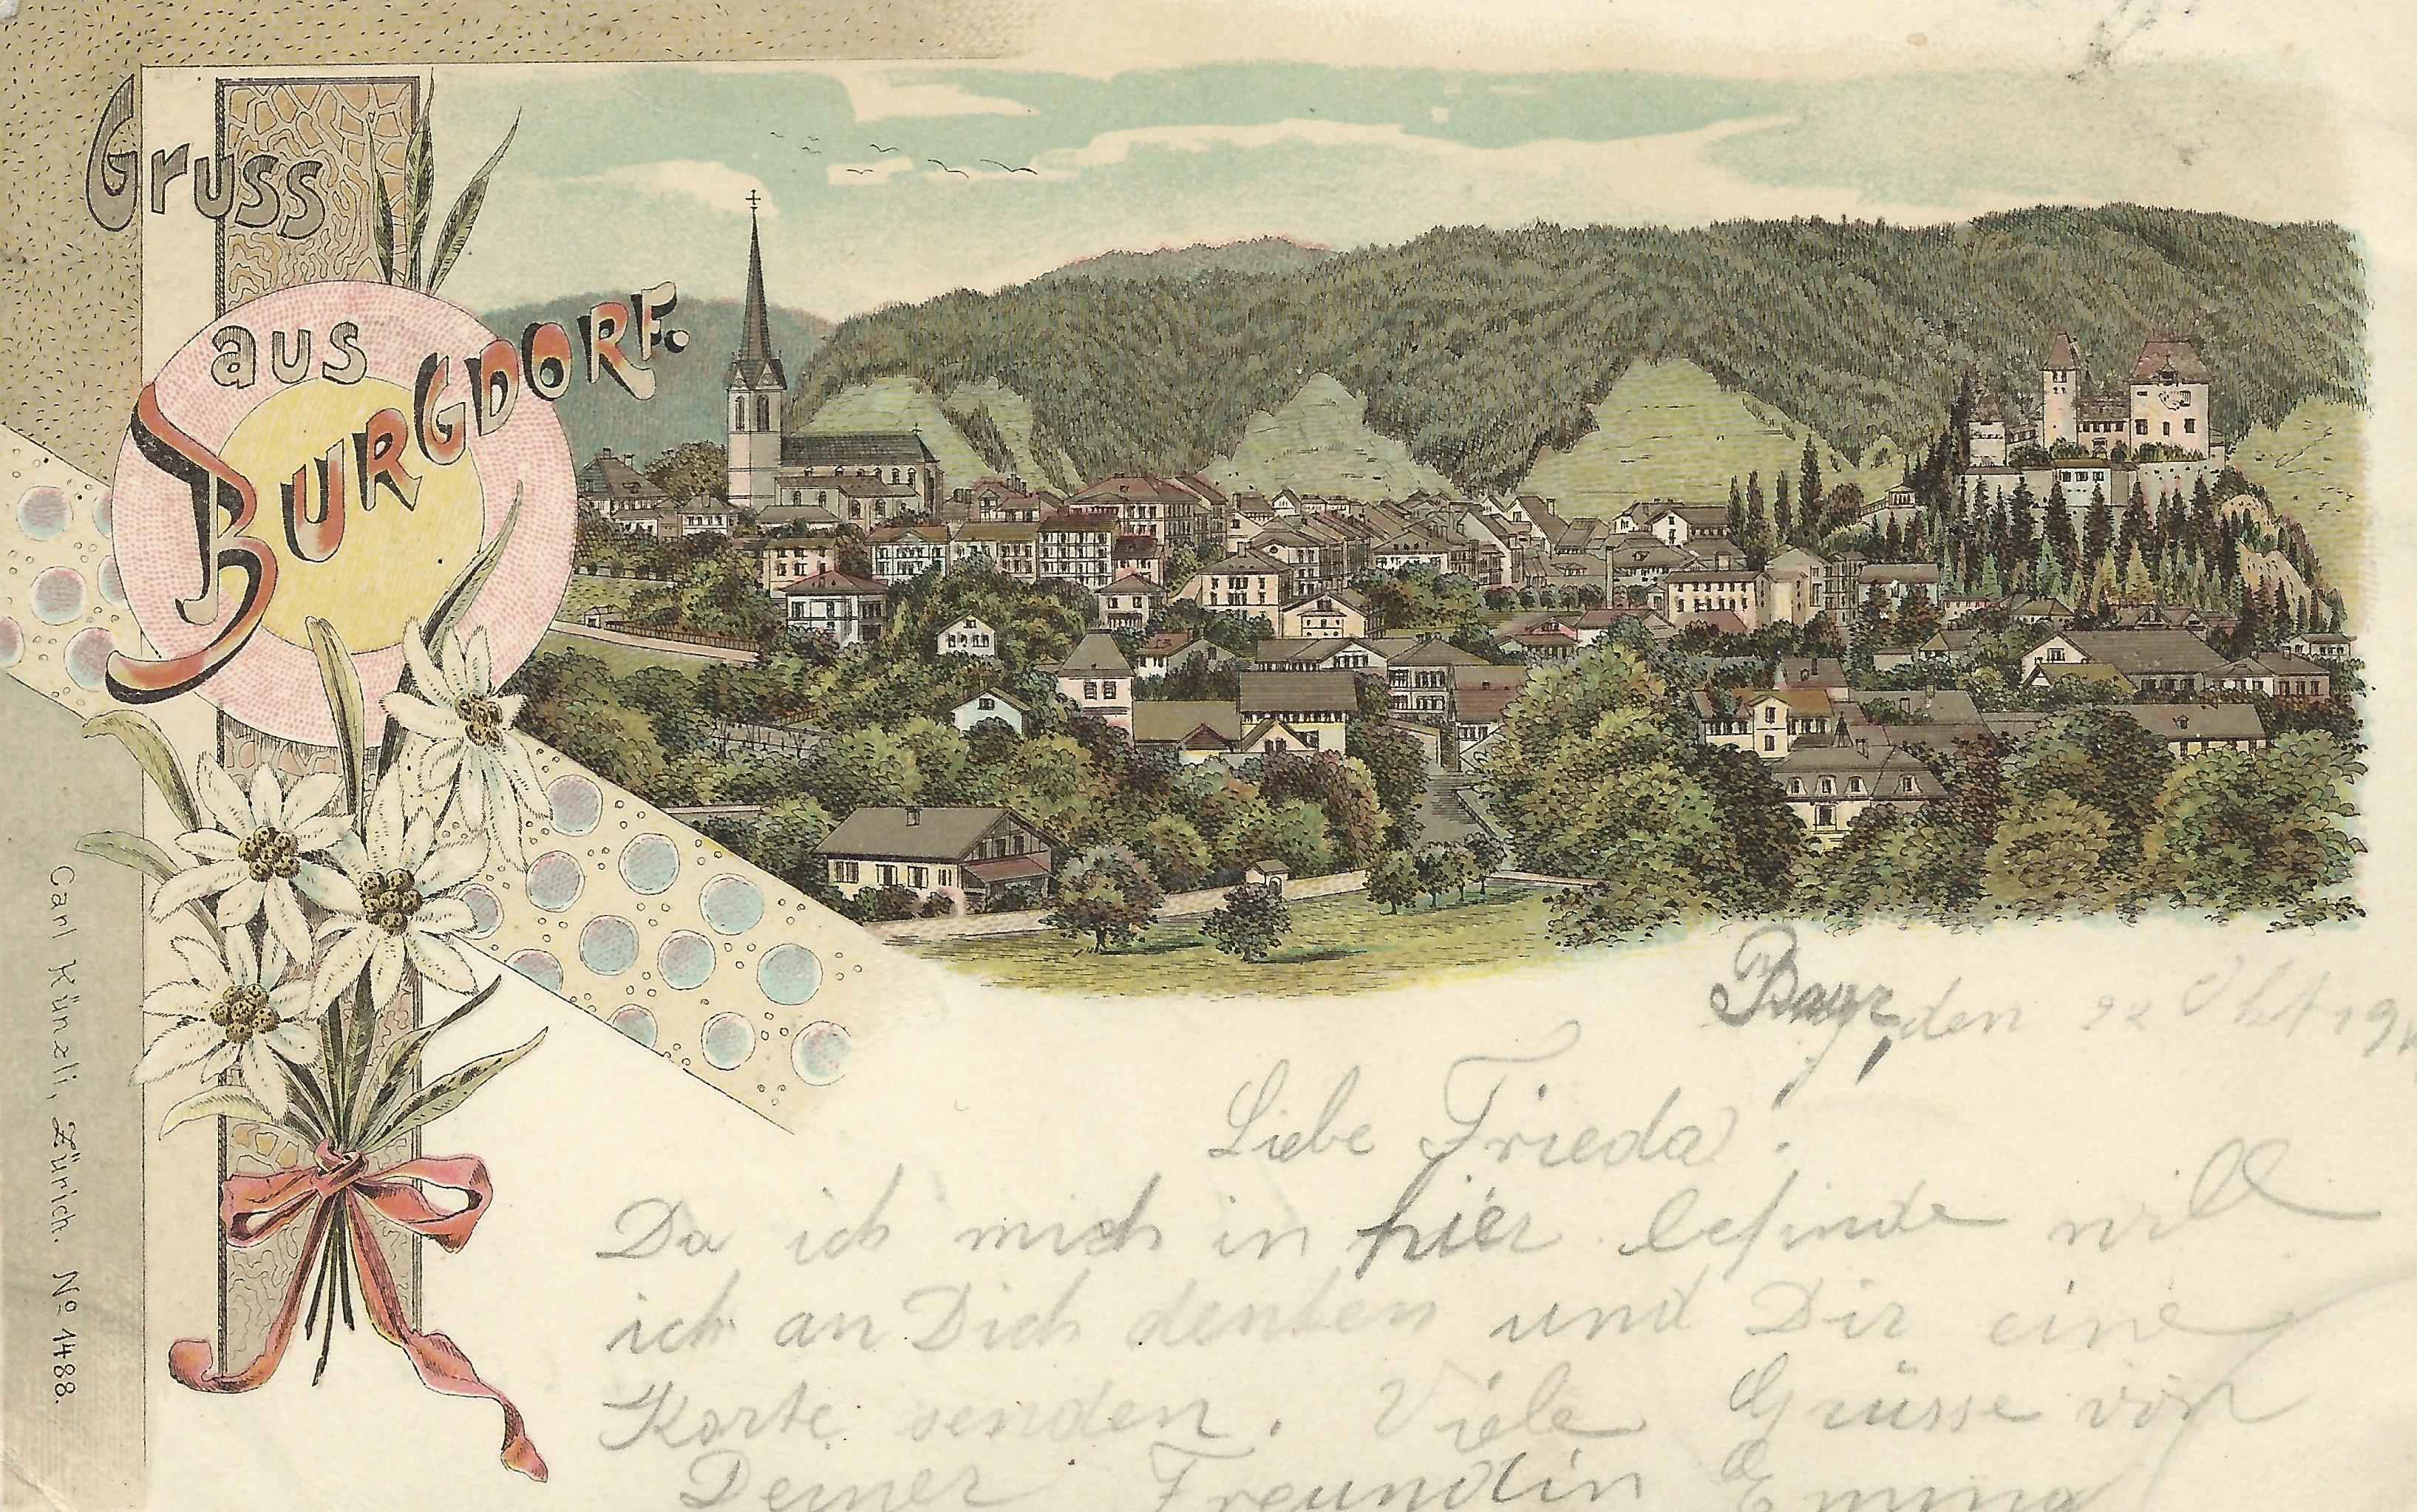 Gruss
aus
BURGDORF.
Carl Künzli, Zürich. No 1488.
den 22 Okt 19
Liebe Frieda!
Da ich mich in hier befinde will
ich an Dich denken und Dir eine
Karte senden. Viele Grüsse von
Deiner Freundin Emma